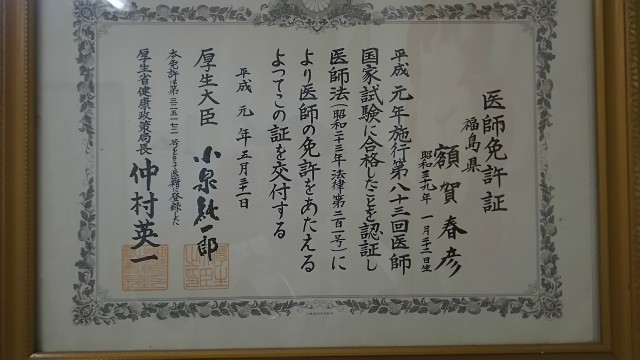 医師免許証
福島県
額賀春彦
昭和三十九年 一月三十一日生
平成 元年施行第八十三回医師
国家試験に合格したことを認証し
医師法(昭和二十三年法律第二百一号)に
より医師の免許をあたえる
よつてこの証を交付する
平成 元年 五月三十一日
厚生大臣 小泉純一郎
本免許は第三一五一七二一号をもつて医籍に登録した
厚生省健康政策局長 仲村英一